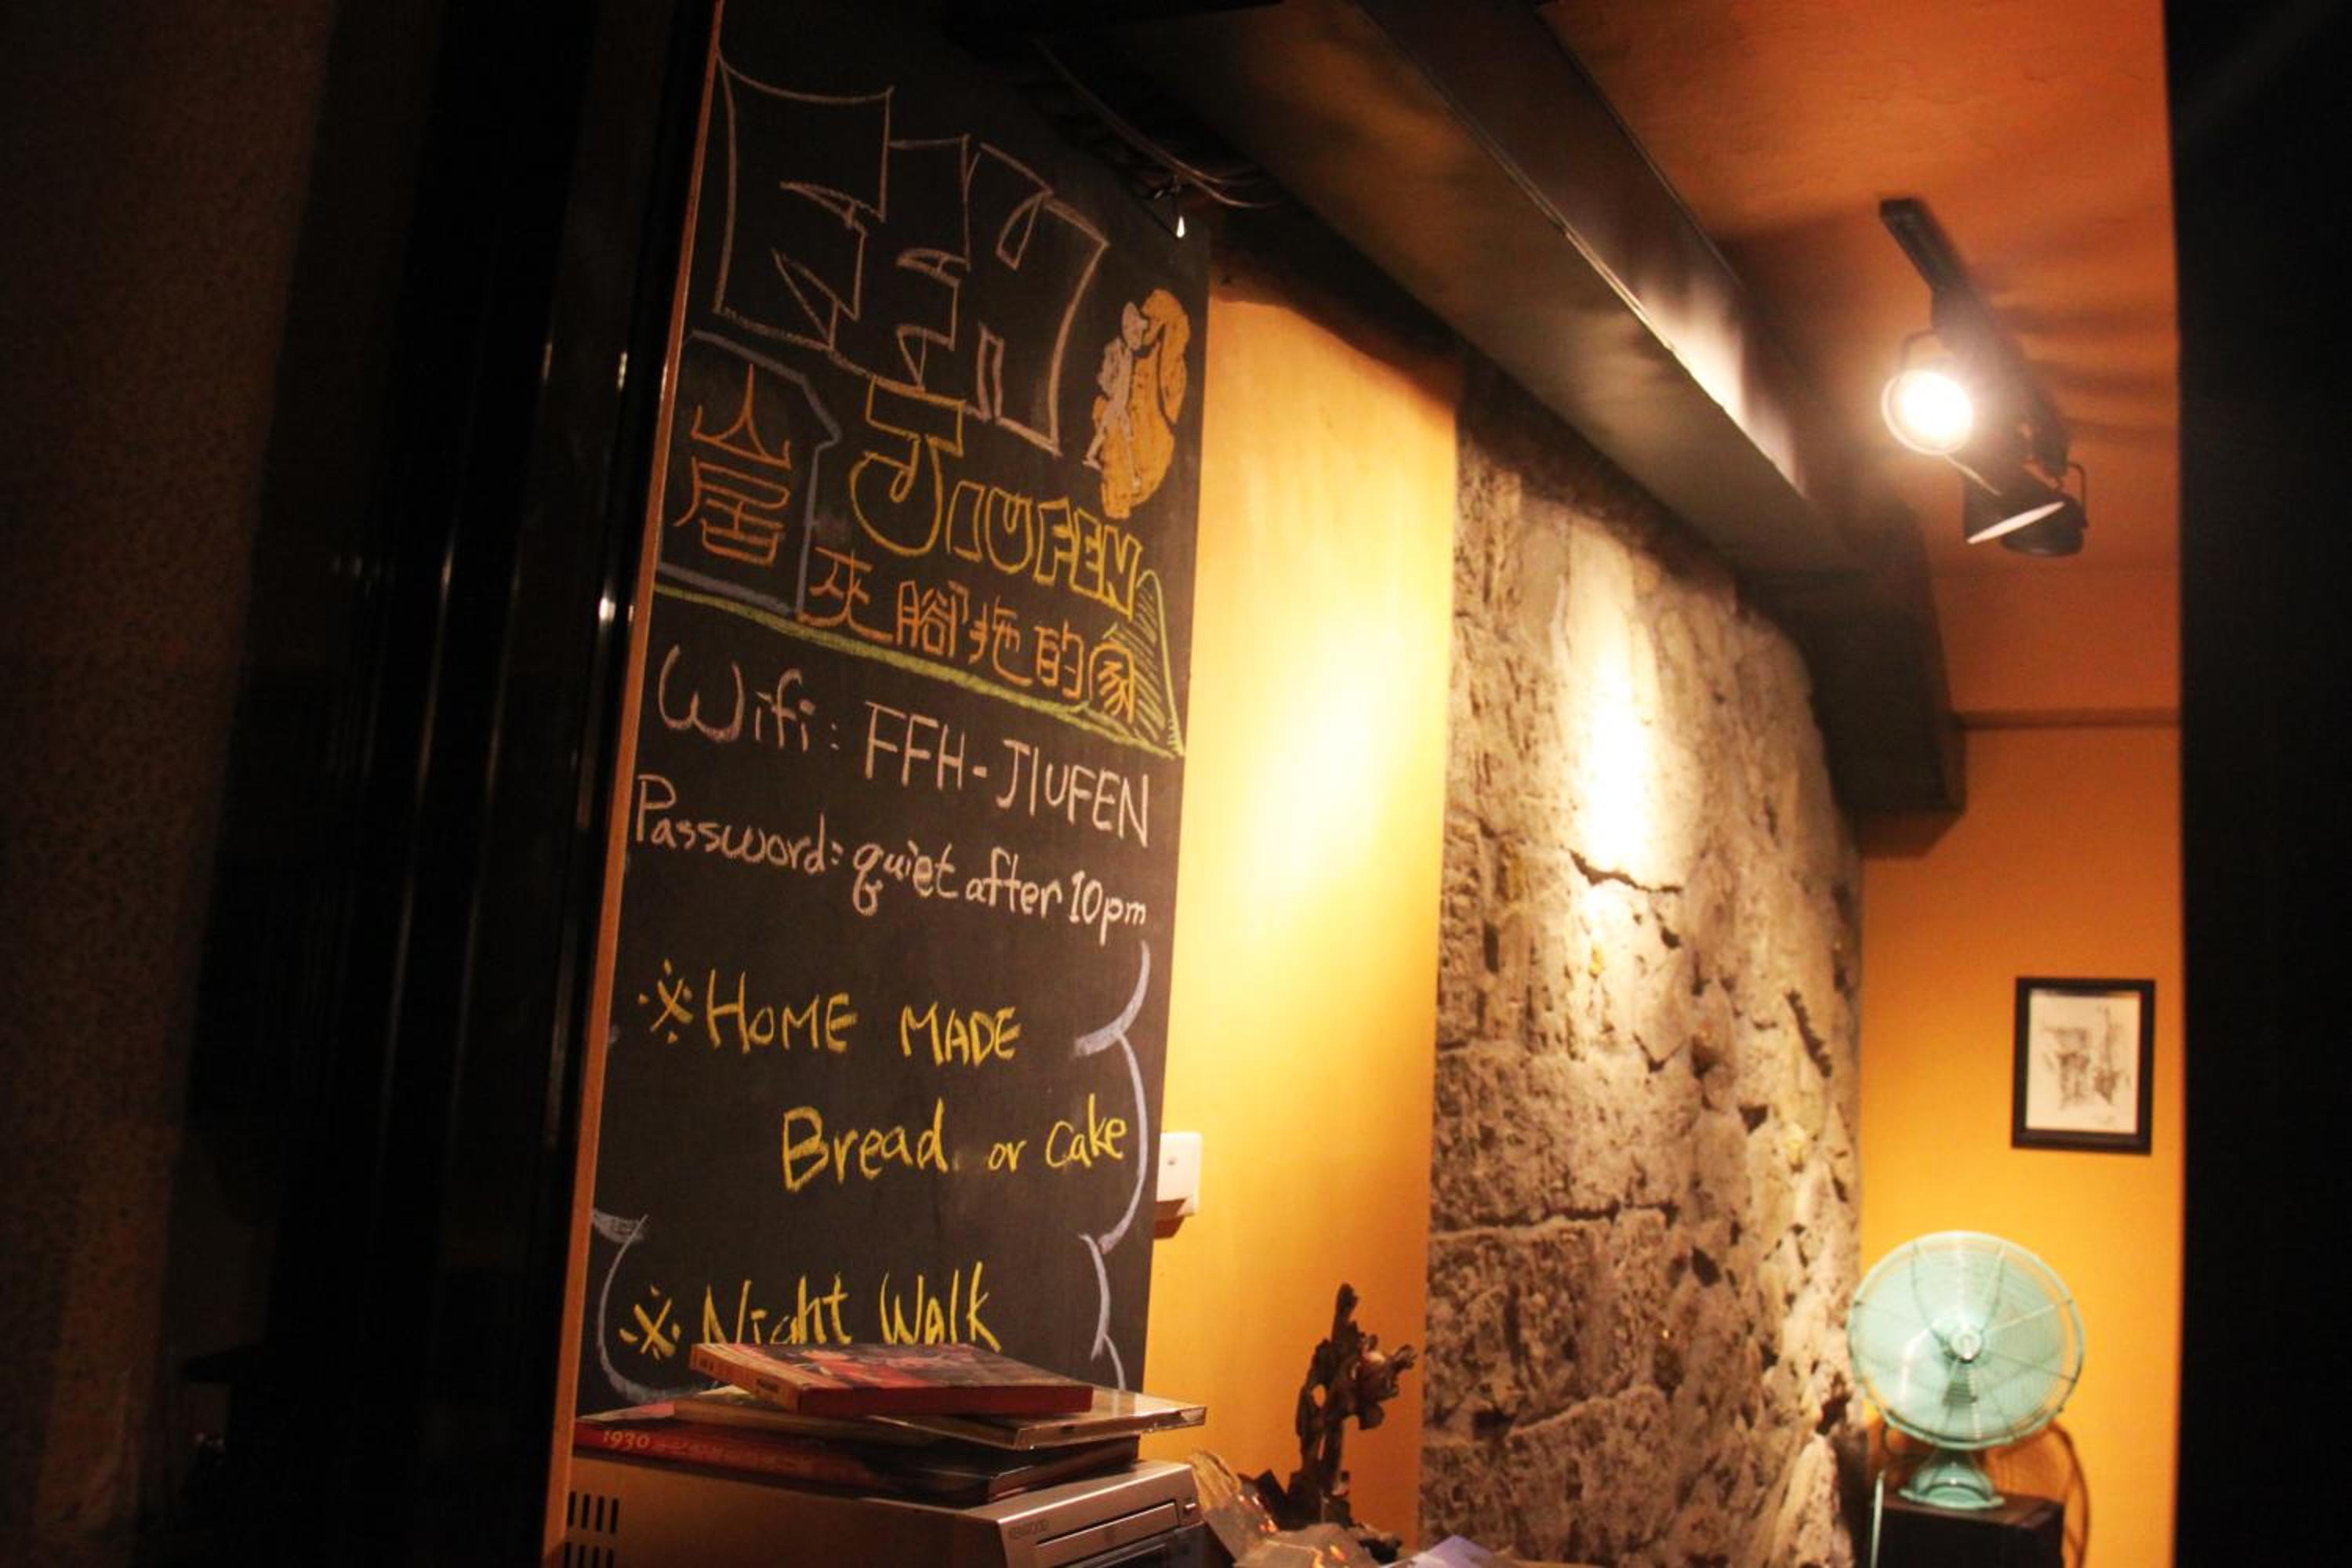 FFH
山居
JIUFEN
夾腳拖的家
Wifi: FFH-JIUFEN
Password: quiet after 10pm
※ HOME MADE
Bread or cake
※ Night Walk
1930
KENWOOD